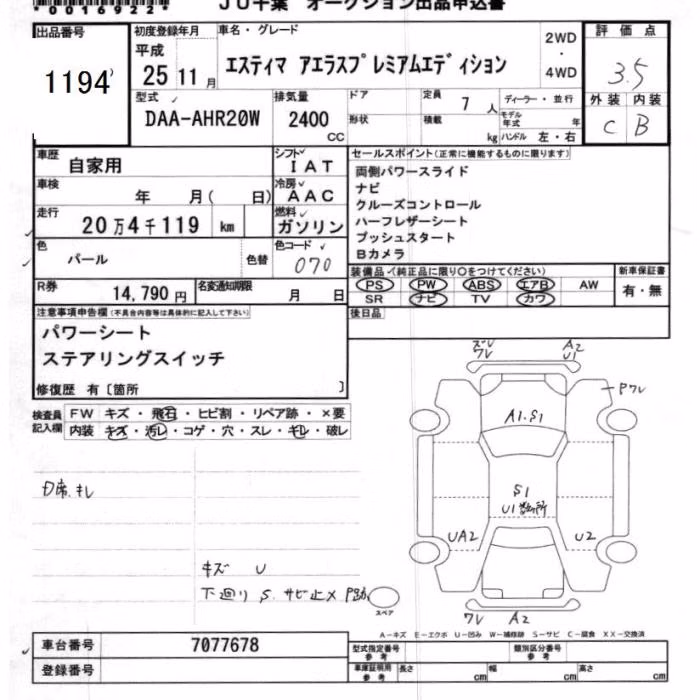 *0016922*
JU千葉 オークション出品申込書
出品番号 1194
初度登録年月 平成 25 11月
車名・グレード エスティマ アエラスプレミアムエディション
2WD・4WD
評価点 3.5
外装 内装
C B
型式 DAA-AHR20W
排気量 2400 CC
ドア 形状
定員 7人
積載 kg
ディーラー・並行
モデル年式 年
ハンドル 左・右
車歴 自家用
シフト IAT
車検 年 月( 日)
冷房 AAC
走行 20万4千119 km
燃料 ガソリン
色 パール 色替
色コード 070
R券 14,790円
名変通知期限 月 日
セールスポイント(正常に機能するものに限ります)
両側パワースライド
ナビ
クルーズコントロール
ハーフレザーシート
プッシュスタート
Bカメラ
装備品(純正品に限り○をつけてください)
PS PW ABS エアB AW
SR ナビ TV カワ
新車保証書 有・無
後日品
注意事項申告欄(不具合内容等は具体的に記入して下さい)
パワーシート
ステアリングスイッチ
修復歴 有〔箇所 〕
検査員記入欄
FW キズ・飛石・ヒビ割・リペア跡・×要
内装 キズ・汚レ・コゲ・穴・スレ・キレ・破レ
キズ U
下廻り S. サビ止×
ワレ
A2
U1
Pワレ
A1.S1
S1
U1
UA2
U2
ワレ A2
スペア
A-キズ E-エクボ U-凹み W-補修跡 S-サビ C-腐食 XX-交換済
車台番号 7077678
登録番号
型式指定番号 参考
類別区分番号 参考
車庫証明用 参考
長さ cm 幅 cm 高さ cm